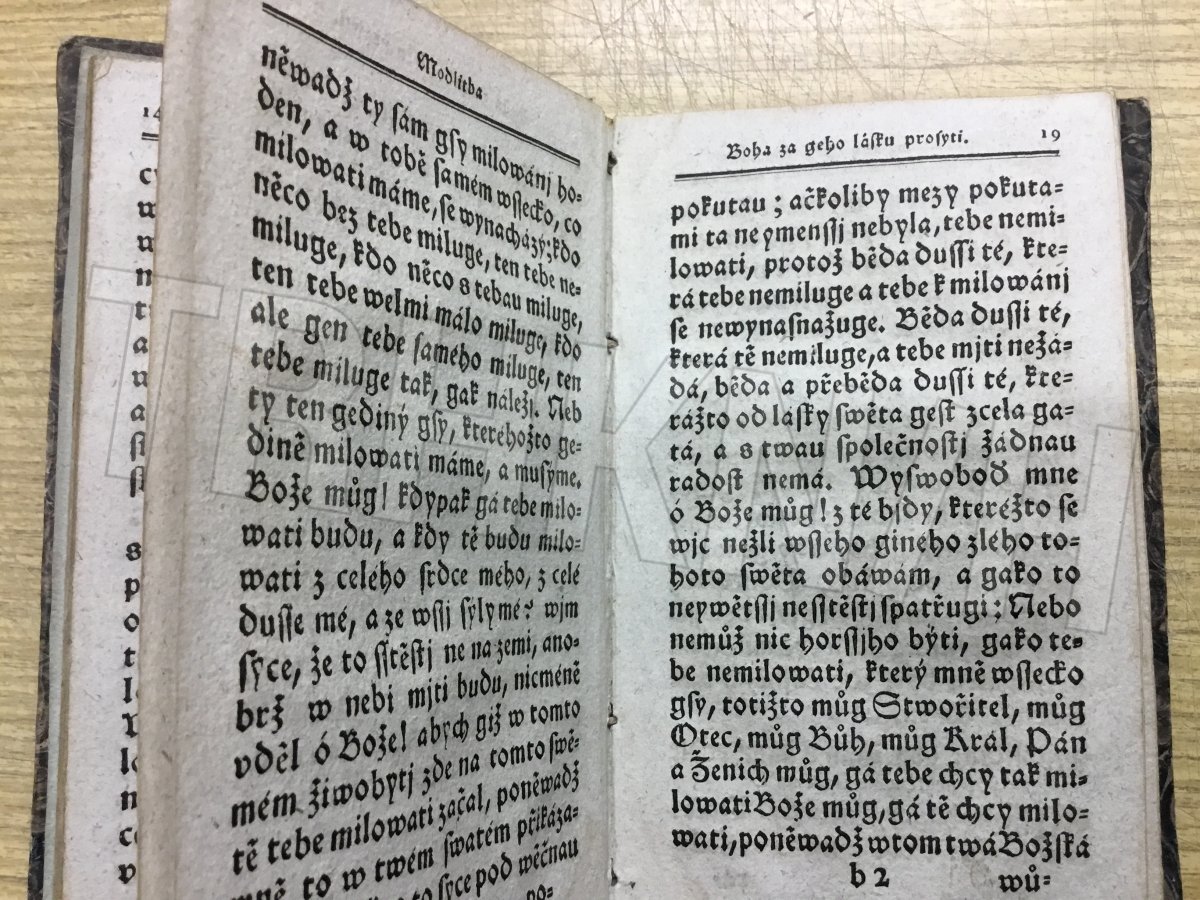 Modlitba
něwadž ty sám gsy milowánj ho-
den, a w tobě samém wssecko, co
milowati máme, se wynacházý; kdo
něco bez tebe miluge, ten tebe ne-
miluge, kdo něco s tebau miluge,
ten tebe welmi málo miluge, kdo
ale gen tebe samého miluge, ten
tebe miluge tak, gak náležj. Neb
ty ten gediný gsy, kteréhožto ge-
dině milowati máme, a musýme.
Bože můg! kdypak gá tebe milo-
wati budu, a kdy tě budu milo-
wati z celého srdce mého, z celé
dusse mé, a ze wssj sýly mé? wjm
sýce, že to sstěstj ne na zemi, ano-
brž w nebi mjti budu, nicméně
vděl ó Bože! abych giž w tomto
mém žiwobytj zde na tomto swě-
tě tebe milowati začal, poněwadž
mně to w twém swatém přikáza-
to sýce pod wěčnau
po-
Boha za geho lásku prosyti. 19
pokutau; ačkoliby mezy pokuta-
mi ta neymenssj nebyla, tebe nemi-
lowati, protož běda dussi té, kte-
rá tebe nemiluge a tebe k milowánj
se newynasnažuge. Běda dussi té,
která tě nemiluge, a tebe mjti nežá-
dá, běda a přeběda dussi té, kte-
rážto od lásky swěta gest zcela ga-
tá, a s twau společnostj žádnau
radost nemá. Wyswoboď mne
ó Bože můg! z té bjdy, kteréžto se
wjc nežli wsseho giného zlého to-
hoto swěta obáwám, a gako to
neywětssj nesstěstj spatřugi; Nebo
nemůž nic horssjho býti, gako te-
be nemilowati, který mně wssecko
gsy, totižto můg Stwořitel, můg
Otec, můg Bůh, můg Král, Pán
a Ženich můg, gá tebe chcy tak mi-
lowati Bože můg, gá tě chcy milo-
wati, poněwadž w tom twá Božská
b 2 wů-